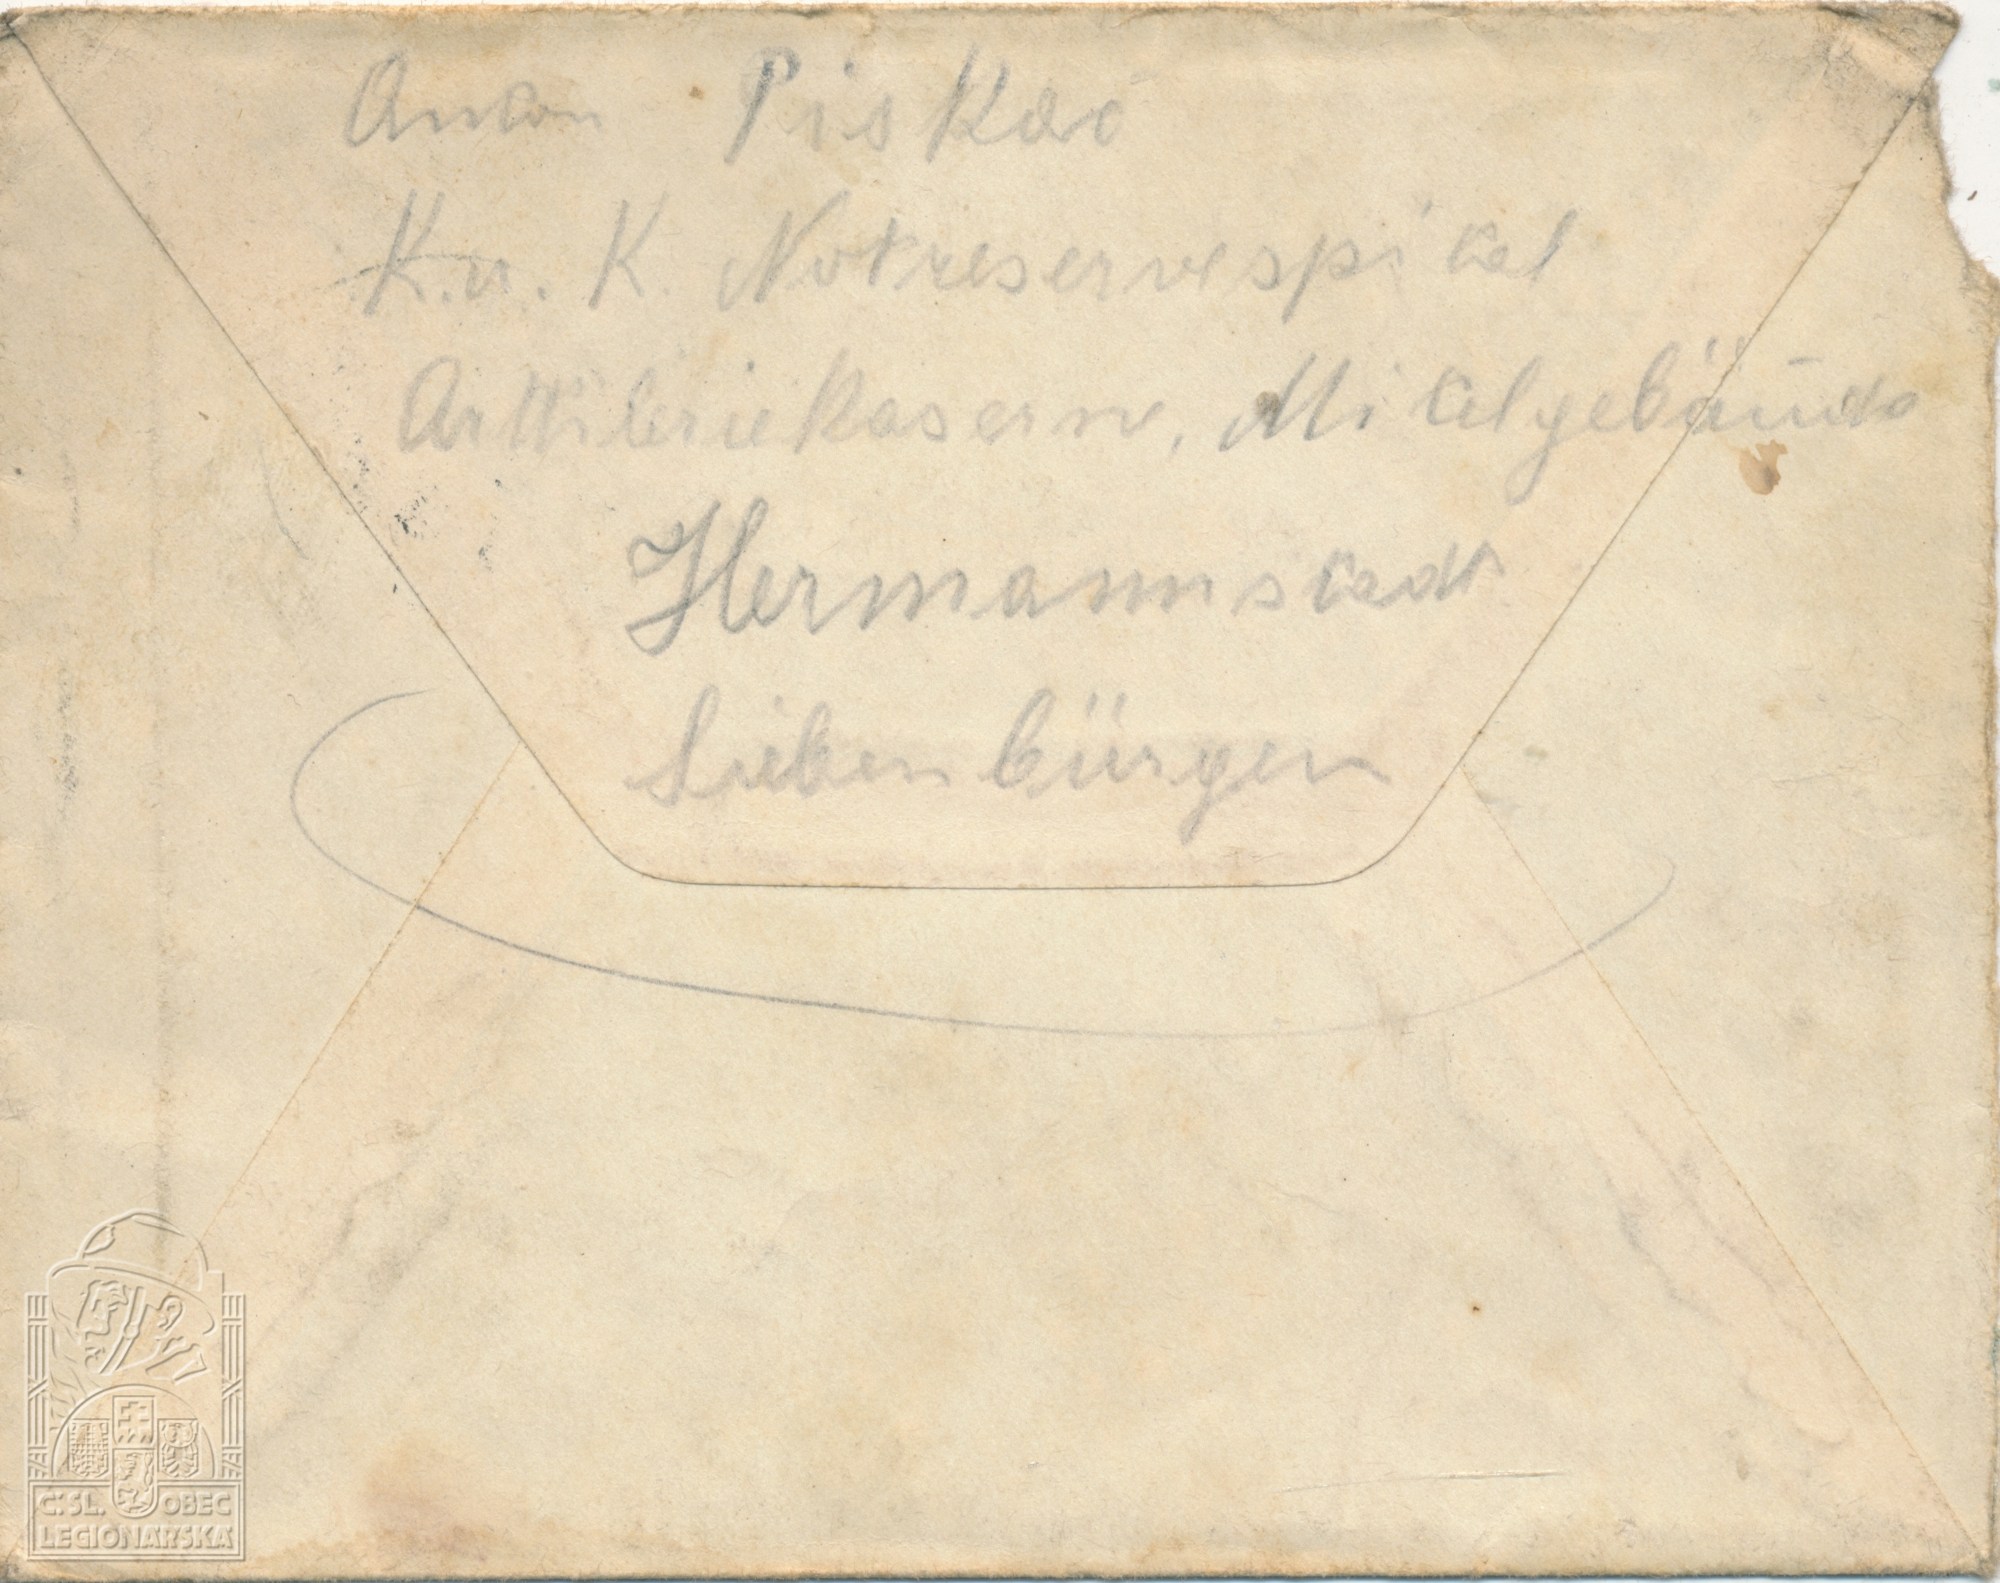 Anton Piskac
K.u. K. Notreservespital
Arttilerie Kaserne, Mitelgebäude
Hermannstadt
Siebenbürgen
ČSL. OBEC
LEGIONÁŘSKÁ